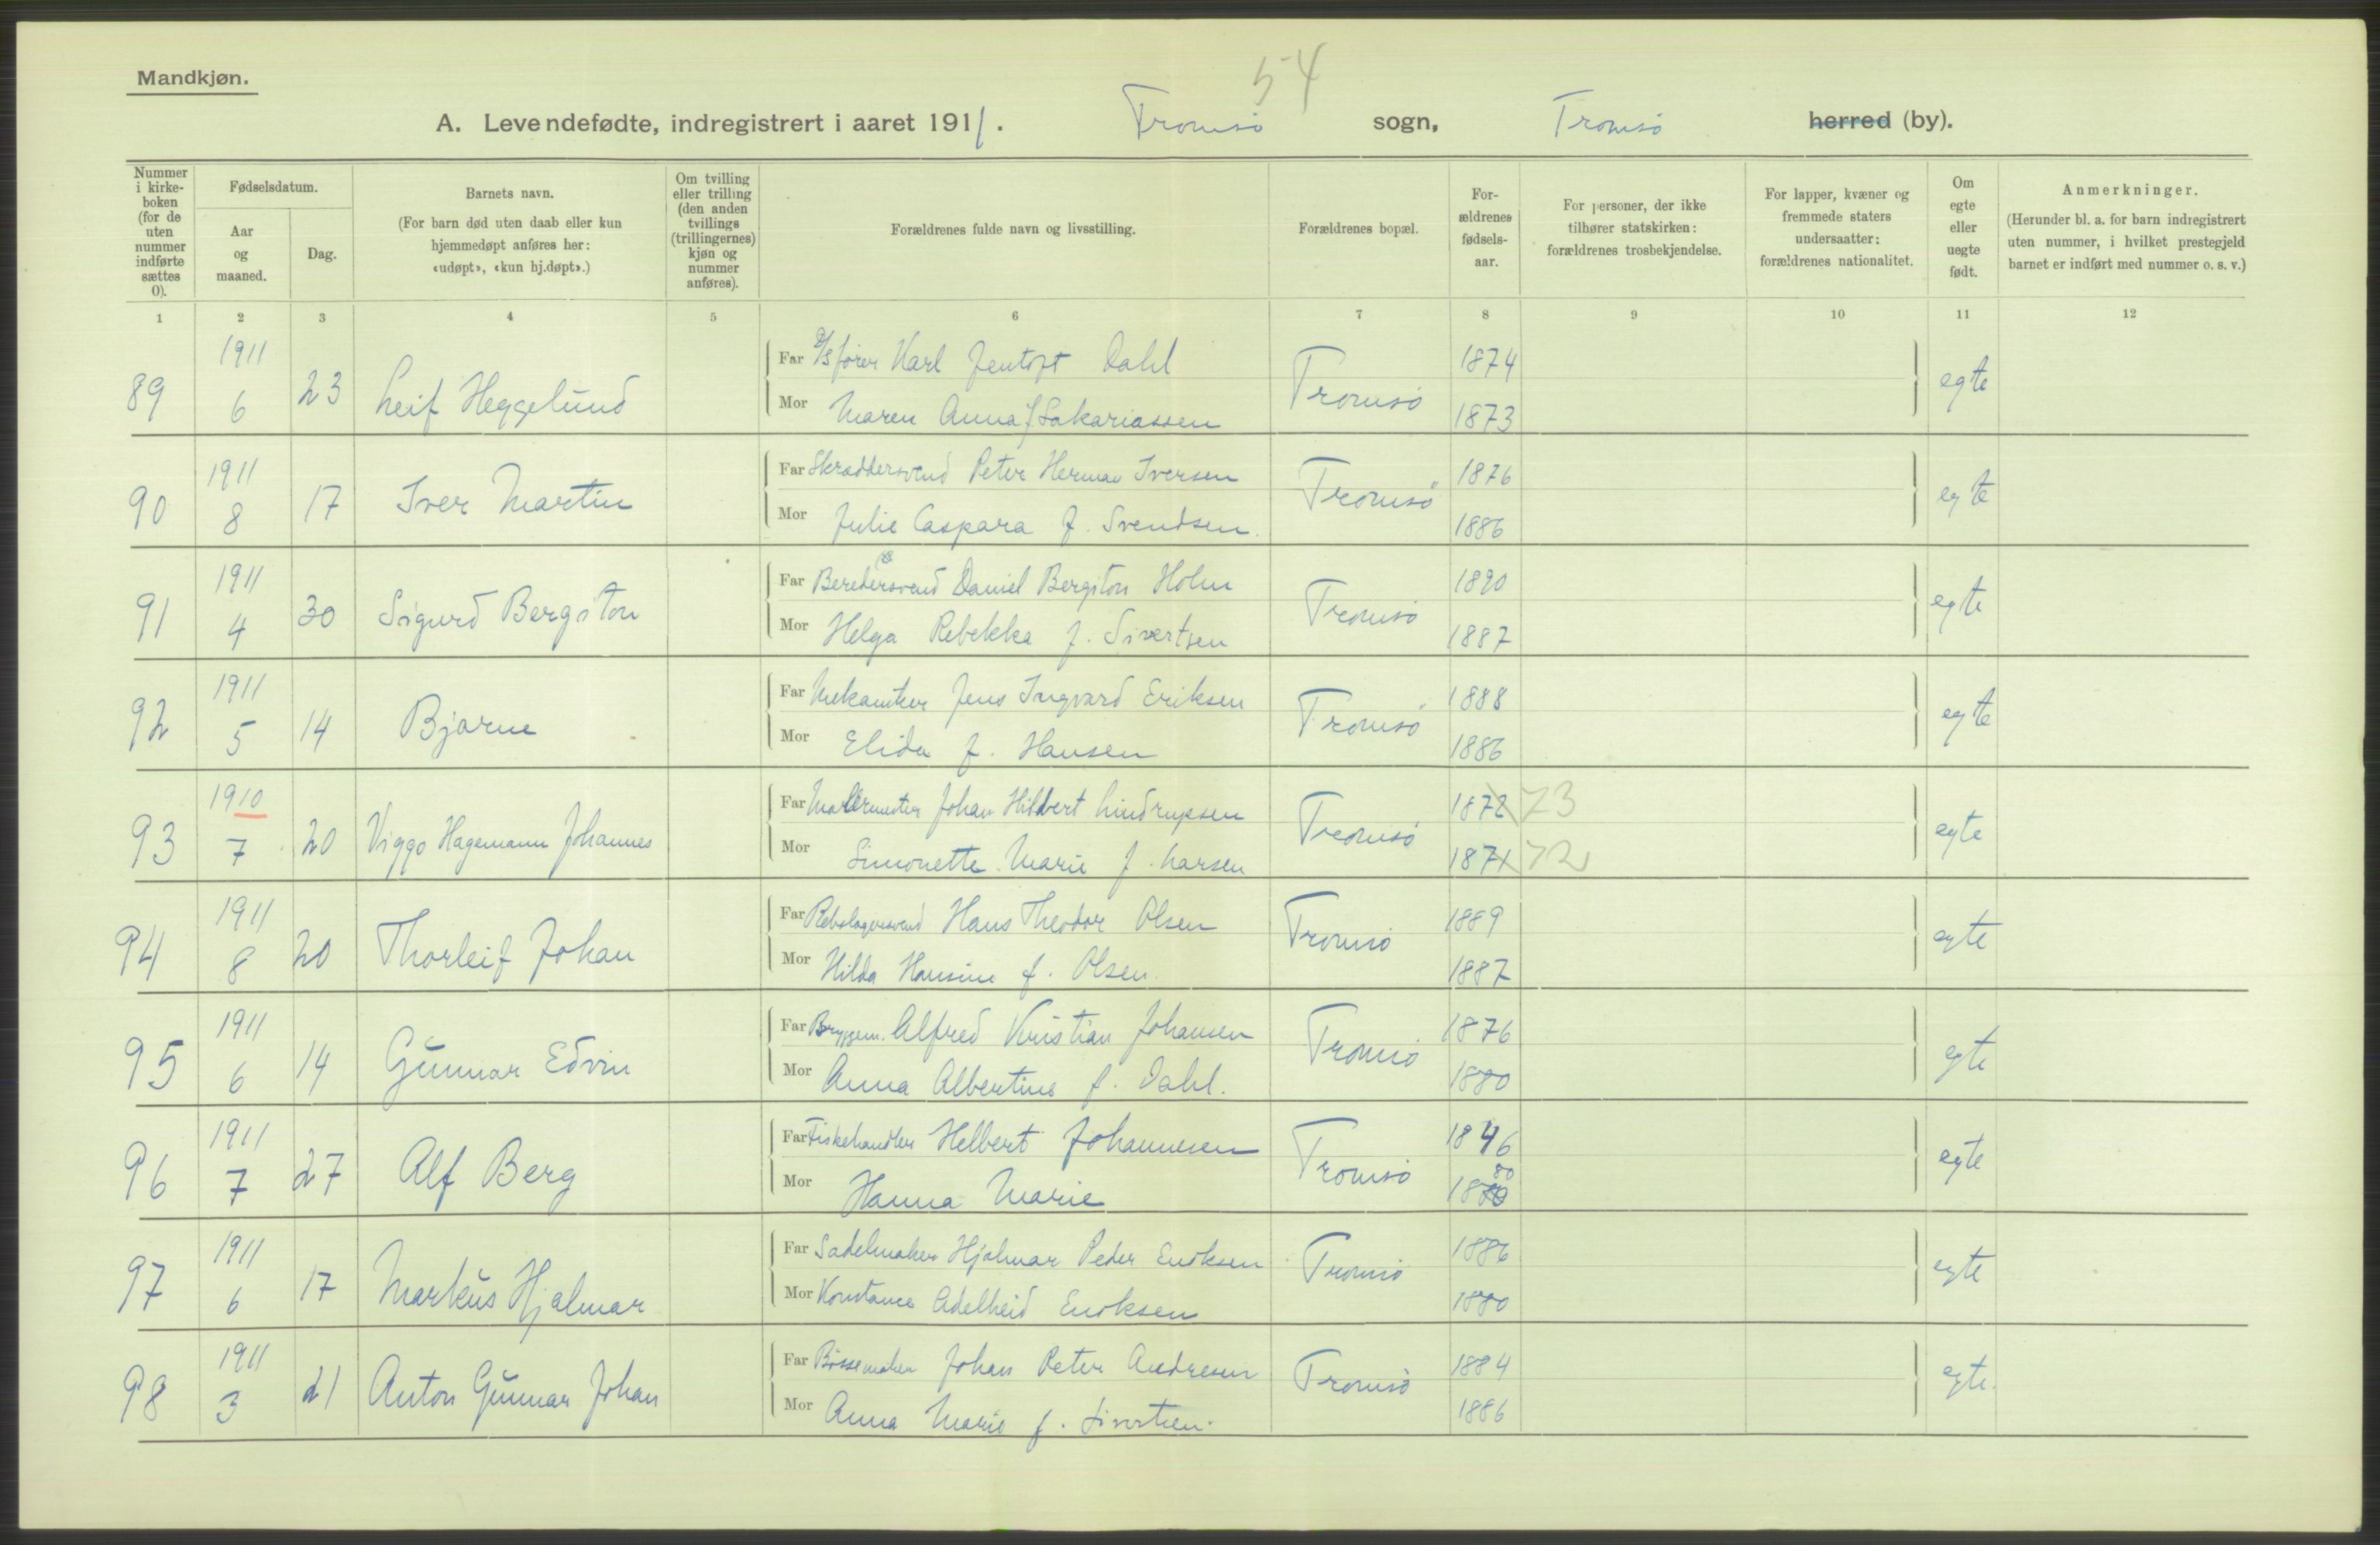 Mandkjøn.
54
A. Levendefødte, indregistrert i aaret 1911. Tromsø sogn, Tromsø herred (by).
Nummer i kirke-boken (for de uten nummer indførte sættes 0).
Fødselsdatum.
Aar og maaned.
Dag.
Barnets navn.
(For barn død uten daab eller kun hjemmedøpt anføres her: «udøpt», «kun hj.døpt».)
Om tvilling eller trilling (den anden tvillings (trillingernes) kjøn og nummer anføres).
Forældrenes fulde navn og livsstilling.
Forældrenes bopæl.
For-ældrenes fødsels-aar.
For personer, der ikke tilhører statskirken: forældrenes trosbekjendelse.
For lapper, kvæner og fremmede staters undersaatter: forældrenes nationalitet.
Om egte eller uegte født.
Anmerkninger.
(Herunder bl. a. for barn indregistrert uten nummer, i hvilket prestegjeld barnet er indført med nummer o. s. v.)
1 2 3 4 5 6 7 8 9 10 11 12
89 1911 6 23 Leif Heggelund Tromsø egte
Far D/S fører Karl Jentoft Dahl 1874
Mor Maren Anna f Sakariassen 1873
90 1911 8 17 Iver Martin Tromsø egte
Far Skræddersvend Peter Herman Iversen 1876
Mor Julie Caspara f. Svendsen 1886
91 1911 4 30 Sigurd Bergiton Tromsø egte
Far Daniel Bergiton Holm 1890
Mor Helga Rebekka f. Sivertsen 1887
92 1911 5 14 Bjarne Tromsø egte
Far Mekaniker Jens Ingvard Eriksen 1888
Mor Elida f. Hansen 1886
93 1910 7 20 Viggo Hagemann Johannes Tromsø egte
Far Malermester Johan Hilbert Lindrupsen 1872 73
Mor Simonette Marie f. Larsen 1871 72
94 1911 8 20 Thorleif Johan Tromsø egte
Far Rebslagersvend Hans Theodor Olsen 1889
Mor Hilda Hansine f. Olsen. 1887
95 1911 6 14 Gunnar Edvin Tromsø egte
Far Bryggem. Alfred Kristian Johansen 1876
Mor Anna Albertine f. Dahl. 1880
96 1911 7 27 Alf Berg Tromsø egte
Far Fiskehandler Helbert Johannesen 1846
Mor Hanna Marie 1880
97 1911 6 17 Markus Hjalmar Tromsø egte
Far Sadelmaker Hjalmar Peder Enoksen 1886
Mor Konstance Adelheid Enoksen 1880
98 1911 3 21 Anton Gunnar Johan Tromsø egte.
Far Bøssemaker Johan Peter Andresen 1884
Mor Anna Marie f. Sivertsen. 1886